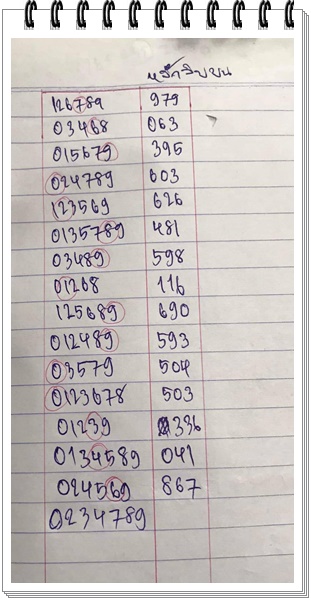 หลักสิบบน
126789 979
03468 063
015679 395
024789 603
123569 626
0135789 481
03489 598
01268 116
125689 690
012489 593
03579 504
0123678 503
01239 336
0134589 041
024569 867
0234789